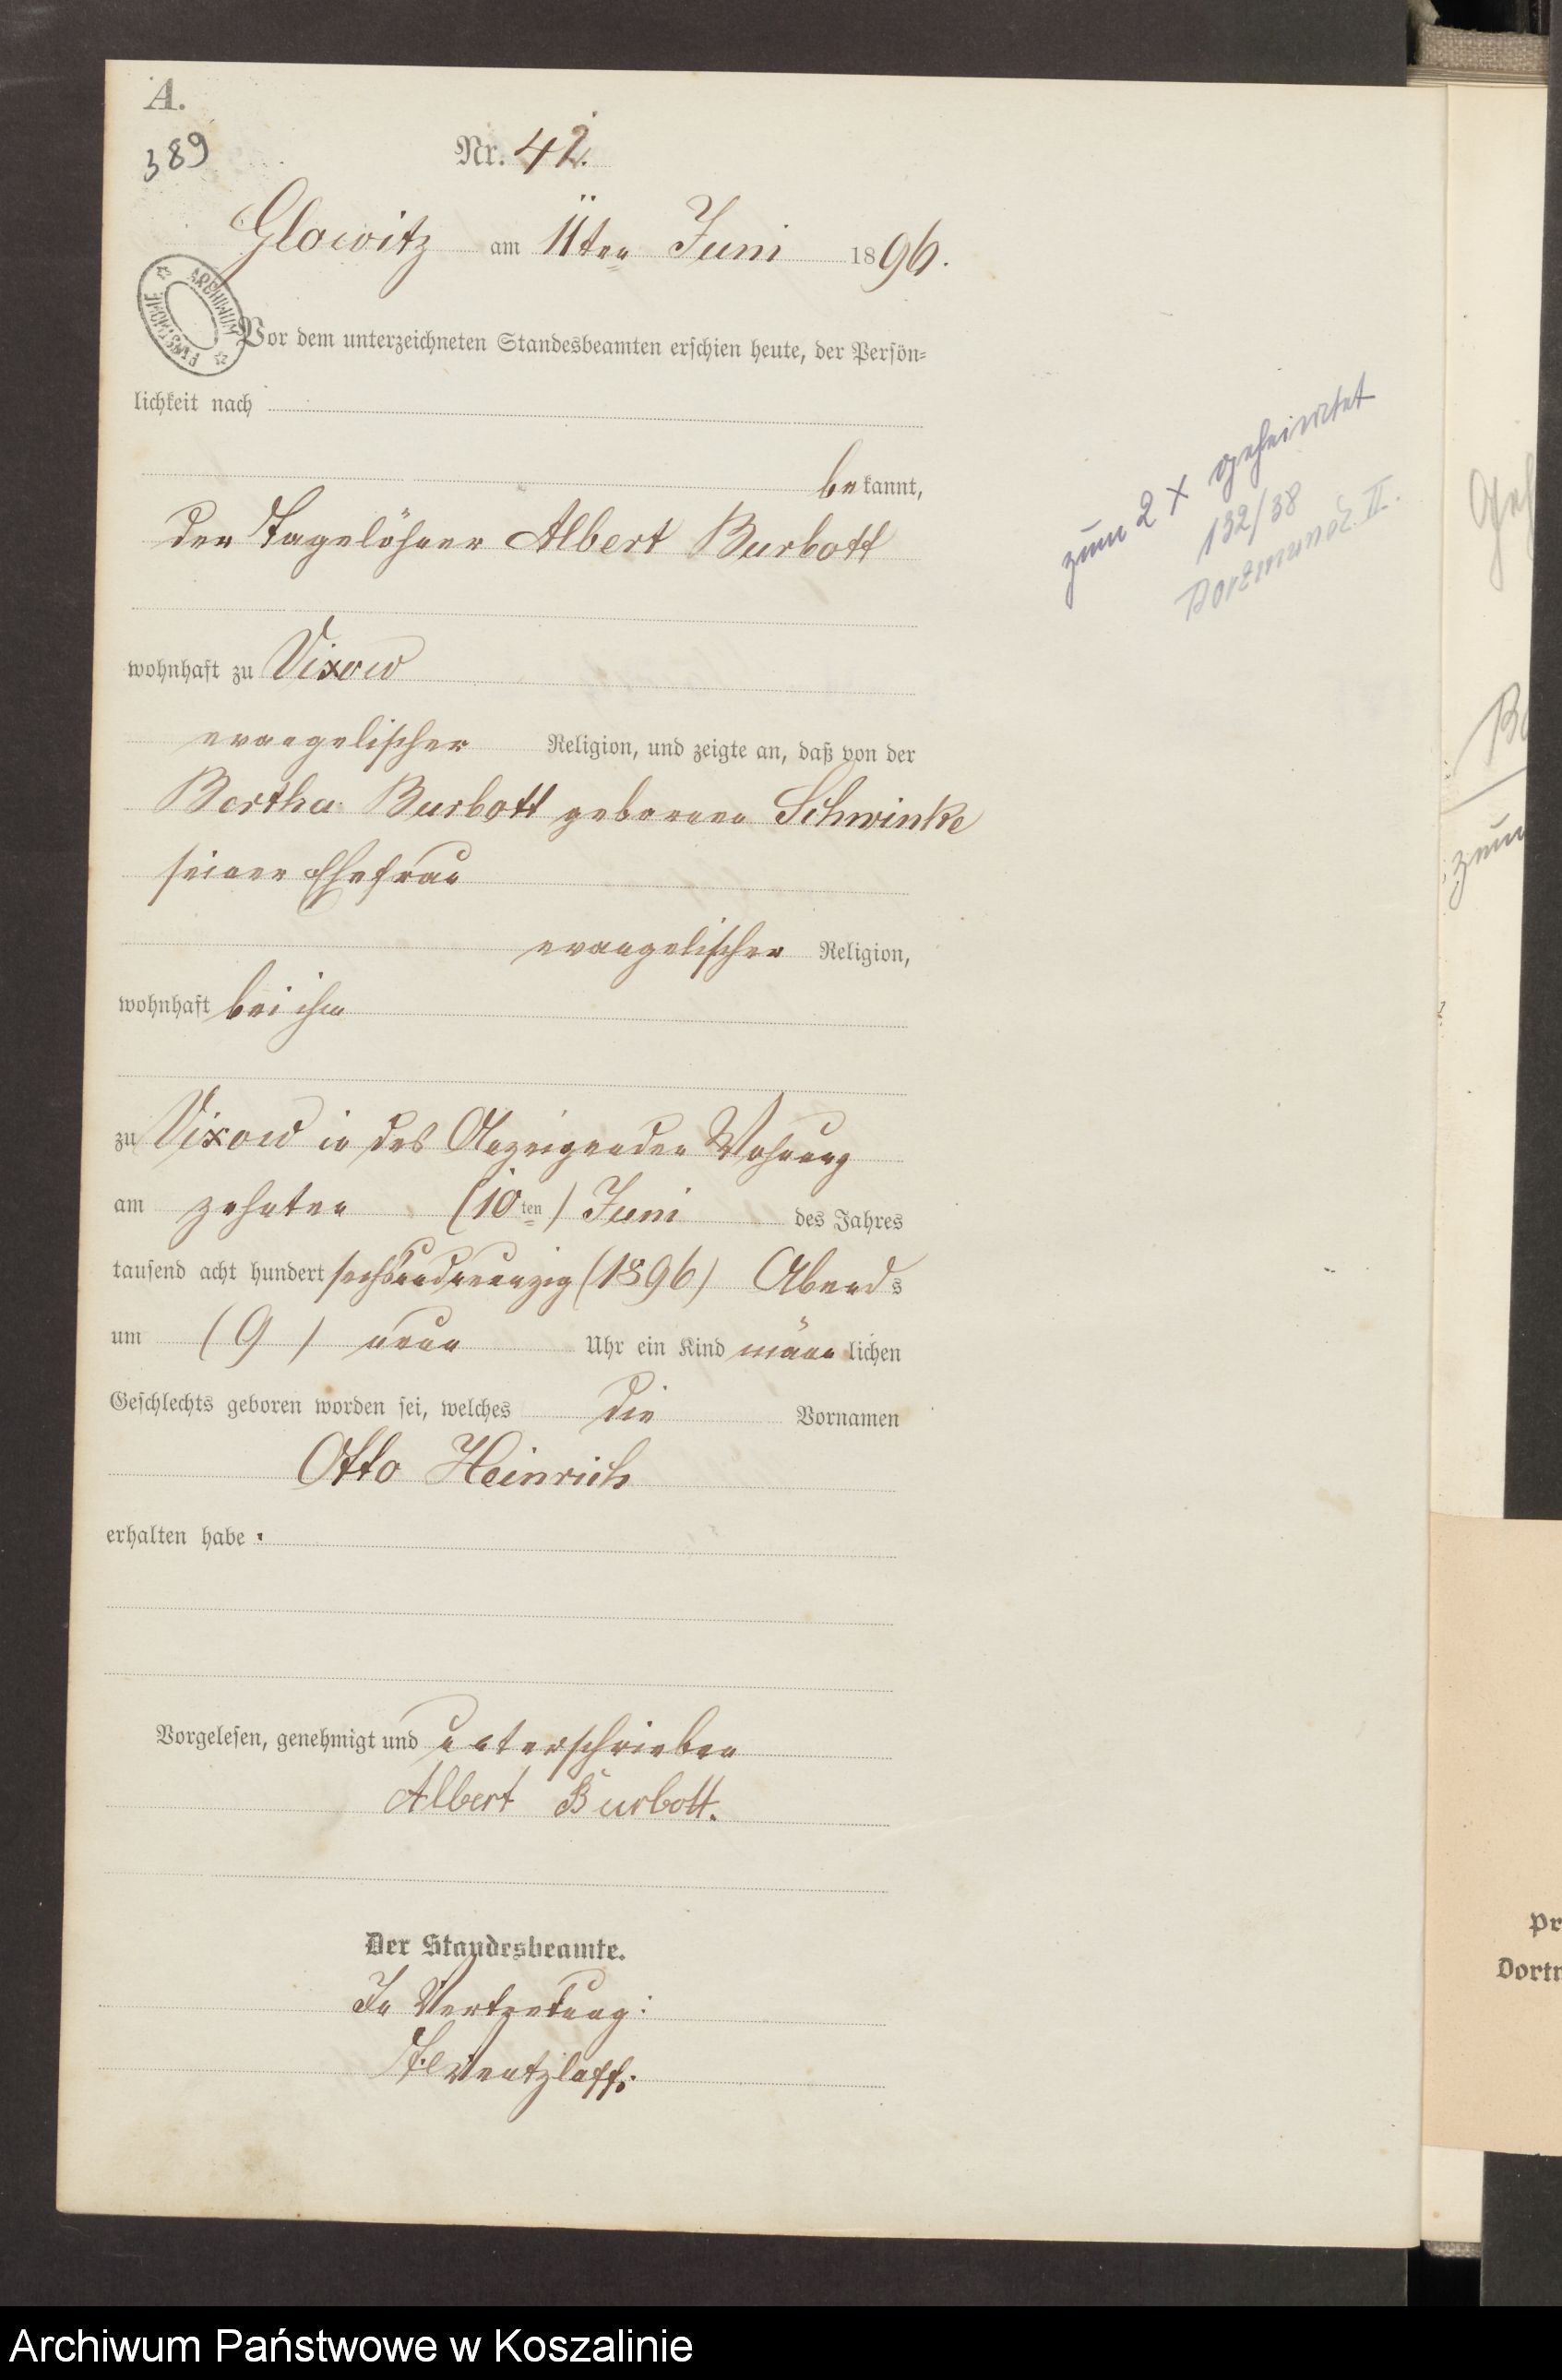 A.
389
Nr. 42.
Glowitz am 11ten Juni 1896.
ARCHIWUM PAŃSTWOWE
Vor dem unterzeichneten Standesbeamten erschien heute, der Persön=
lichkeit nach
bekannt,
der Tagelöhner Albert Burbott
wohnhaft zu Vixow
evangelischer Religion, und zeigte an, daß von der
Bertha Burbott geborenen Schwinke
seiner Ehefrau
evangelischer Religion,
wohnhaft bei ihm
zu Vixow in des Anzeigenden Wohnung
am zehnten (10ten) Juni des Jahres
tausend acht hundert sechsundneunzig (1896) Abends
um (9) neun Uhr ein Kind männlichen
Geschlechts geboren worden sei, welches die Vornamen
Otto Heinrich
erhalten habe.
Vorgelesen, genehmigt und unterschrieben
Albert Burbott.
Der Standesbeamte.
In Vertretung:
Wentzlaff.
zum 2 x geheiratet
132/38
Dortmund II.
zum
Pr
Dortm
Archiwum Państwowe w Koszalinie